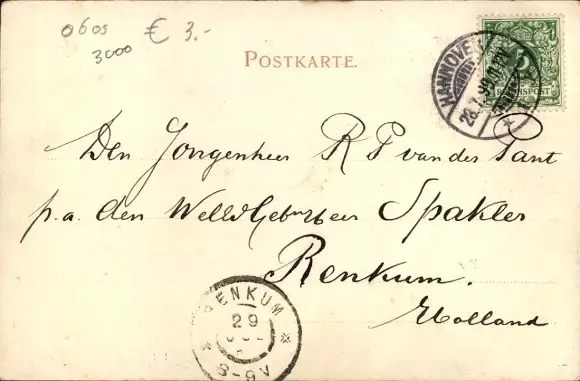 0605
3000
€ 3.-
POSTKARTE.
HANNOVER
28.7.99
5
REICHSPOST
Den Jongenheer R P van der Pant
p.a. den WelEdGeb. Heer Spakler
Renkum.
Holland
RENKUM
29
8-9V